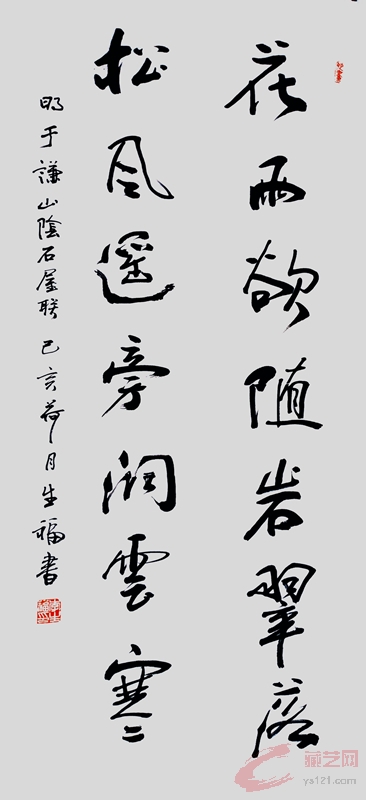 花雨欲随岩翠落
松风遥旁涧雲寒
明于謙山陰石屋联 己亥荷月生福書
藏艺网
ys121.com